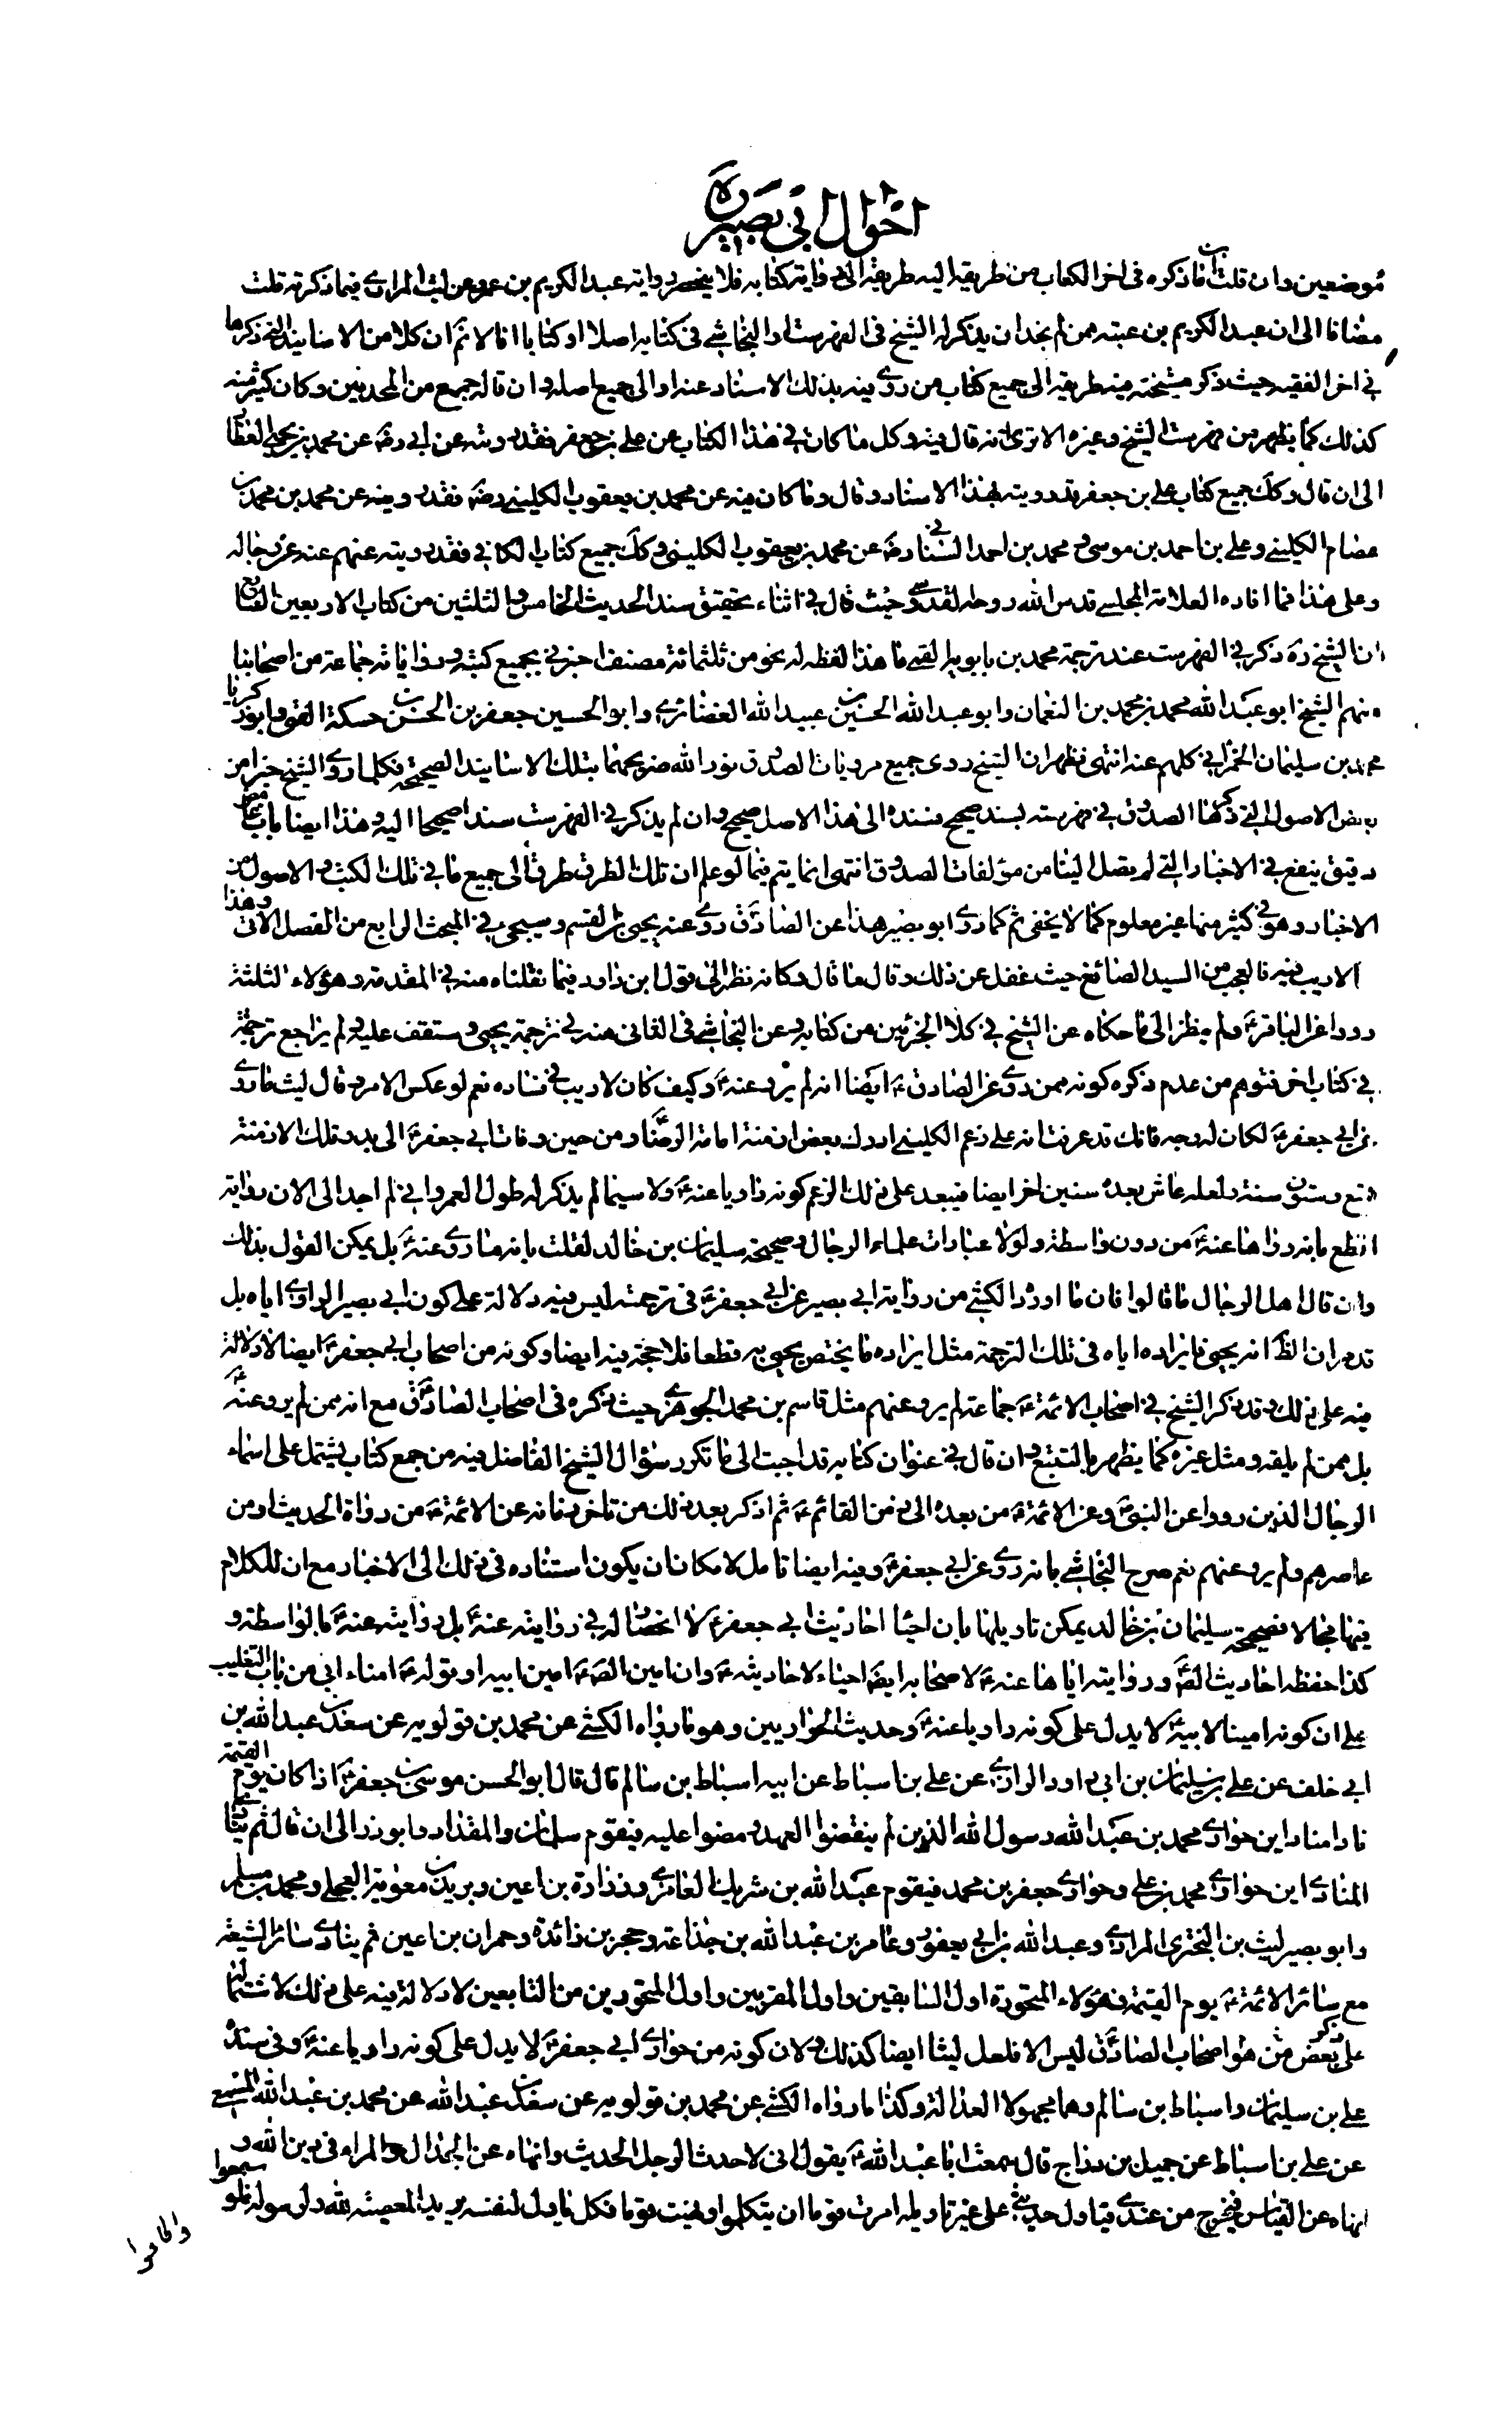 احوال ابی بصیر
موضعين وان قلت ان ما ذكره فی اخر الكتاب من طريقه اليه طريقه الی رواية كتابه فلا ينحصر رواية عبد الكريم بن عمرو عن ليث المرادی فيما ذكرته قلت
مضافا الی ان عبد الكريم بن عتبه ممن لم نجد ان يذكر له الشيخ فی الفهرست او النجاشی فی كتابه اصلا او كتابا انا لا نم ان كلا من الاسانيد التی ذكرها
فی اخر الفقيه حيث ذكر مشيخته فيه طريقه الی جميع كتاب من روی فيه بذلك الاسناد عنه او الی جميع اصله وان قاله جمع من المحدثين وكان كثير منه
كذلك كما يظهر من فهرست الشيخ وغيره الا تری انه قال فيه وكل ما كان فی هذا الكتاب عن علی بن جعفر فقد رويته عن ابی رضه عن محمد بن يحيی العطار
الی ان قال وكك جميع كتاب علی بن جعفر قد رويته بهذا الاسناد وقال وما كان فيه عن محمد بن يعقوب الكلينی رضه فقد رويته عن محمد بن محمد بن
عصام الكلينی وعلی بن احمد بن موسی ومحمد بن احمد السنانی رضه عن محمد بن يعقوب الكلينی وكك جميع كتاب الكافی فقد رويته عنهم عنه عن رجاله
وعلی هذا فما افاده العلامة المجلسی قدس الله روحه القدسی حيث قال فی اثناء تحقيق سند الحديث الخامس والثلثين من كتاب الاربعين
ان الشيخ ره ذكر فی الفهرست عند ترجمة محمد بن بابويه القمی ما هذا لفظه له نحو من ثلثمائة مصنف اخبرنی بجميع كتبه ورواياته جماعة من اصحابنا
منهم الشيخ ابو عبد الله محمد بن محمد بن النعمان وابو عبد الله الحسين بن عبيد الله الغضائری وابو الحسين جعفر بن الحسن بن حسكة القمی وابو زكريا
محمد بن سليمان الحمرانی كلهم عنه انتهی فظهر ان الشيخ روی جميع مرويات الصدوق نور الله ضريحهما بتلك الاسانيد الصحيحة فكلما روی الشيخ خبرا من
بعض الاصول التی ذكرها الصدوق فی فهرسته بسند صحيح فسنده الی هذا الاصل صحيح وان لم يذكر فی الفهرست سندا صحيحا اليه وهذا ايضا باب غامض
دقيق ينفع فی الاخبار التی لم يصل الينا من مؤلفات الصدوق انتهی انما يتم فيما لو علم ان تلك الطرق طرق الی جميع ما فی تلك الكتب والاصول من
الاخبار وهو فی كثير منها غير معلوم كما لا يخفی ثم كما روی ابو بصير هذا عن الصادق روی عنه يحيی بن القسم وسيجیء فی المبحث الرابع من الفصل الاتی وهذا
لا ريب فيه فالعجب من السيد الصائغ حيث غفل عن ذلك وقال ما قال وكانه نظر الی قول ابن داود فيما نقلناه منه فی المقدمة وهؤلاء الثلثة
رووا عن الباقر ولم ينظر الی ما حكاه عن الشيخ فی كلا الجزئين من كتابه وعن النجاشی فی الثانی منه فی ترجمة يحيی وستقف عليه ولم يراجع ترجمته
فی كتاب اخر فتوهم من عدم ذكره كونه ممن روی عن الصادق ايضا انه لم يرو عنه وكيف كان لا ريب فی فساده نعم لو عكس الامر وقال ليث ما روی
عن ابی جعفر لكان له وجه فانك قد عرفت انه علی زعم الكلينی ادرك بعض ازمنة امامة الرضا ومن حين وفات ابی جعفر الی بدو تلك الازمنة
تسع وستون سنة ولعله عاش بعده سنين اخر ايضا فيبعد علی ذلك الزعم كونه راويا عنه ولا سيما لم يذكر له طول العمر وانی لم اجد الی الان رواية
اقطع بانه رواها عنه من دون واسطة ولولا عبارات علماء الرجال وصحيحة سليمان بن خالد لقلت بانه ما روی عنه بل يمكن القول بذلك
وان قال اهل الرجال ما قالوا فان ما اورد الكشی من رواية ابی بصير عن ابی جعفر فی ترجمته ليس فيه دلالة علی كون ابی بصير الراوی اياه بل
قد مر ان الظ انه يحيی فايراده اياه فی تلك الترجمة مثل ايراده ما يختص بيحيی به قطعا فلا حجة فيه ايضا وكونه من اصحاب ابی جعفر ايضا لا دلالة
فيه علی ذلك وقد ذكر الشيخ فی اصحاب الائمة جماعة لم يرو عنهم مثل قاسم بن محمد الجوهری حيث ذكره فی اصحاب الصادق مع انه ممن لم يرو عنه
بل ممن لم يلقه ومثل غيره كما يظهر بالتتبع وان قال فی عنوان كتابه قد اجبت الی ما تكرر سؤال الشيخ الفاضل فيه من جمع كتاب يشتمل علی اسماء
الرجال الذين رووا عن النبی وعن الائمة من بعده الی زمن القائم ثم اذكر بعد ذلك من تاخر زمانه عن الائمة من رواة الحديث او من
عاصرهم ولم يرو عنهم نعم صرح النجاشی بانه روی عن ابی جعفر وفيه ايضا تامل لامكان ان يكون استناده فی ذلك الی الاخبار مع ان للكلام
فيها مجالا فصحيحة سليمان بن خالد يمكن تاويلها بان احيا احاديث ابی جعفر لا اختصاص له فی روايته عنه بل روايته عنه بالواسطة و
كذا حفظه احاديث الصه وروايته اياها عنه لاصحابه ايضه احياء لاحاديثه وان امين الصه امين ابيه او قوله امناء ابی من باب التغليب
علی ان كونه امينا لابيه لا يدل علی كونه راويا عنه وحديث الحواريين وهو ما رواه الكشی عن محمد بن قولويه عن سعد بن عبد الله بن
ابی خلف عن علی بن سليمان بن ابی داود الرازی عن علی بن اسباط عن ابيه اسباط بن سالم قال قال ابو الحسن موسی بن جعفر اذا كان يوم القيمة
نادا مناد اين حواری محمد بن عبد الله رسول الله الذين لم ينقضوا العهد ومضوا عليه فيقوم سلمان والمقداد وابو ذر الی ان قال ثم ينادی
المنادی اين حواری محمد بن علی وحواری جعفر بن محمد فيقوم عبد الله بن شريك العامری وزرارة بن اعين وبريد بن معوية العجلی ومحمد بن مسلم
وابو بصير ليث بن البختری المرادی وعبد الله بن ابی يعفور وعامر بن عبد الله بن جذاعة وحجر بن زائدة وحمران بن اعين ثم ينادی سائر الشيعة
مع سائر الائمة يوم القيمة فهؤلاء المتحورة اول السابقين واول المقربين واول المتحورين من التابعين لا دلالة فيه علی ذلك لاشتمالها
علی ذكر بعض من هو اصحاب الصادق ليس الا فلعل ليثا ايضا كذلك ولان كونه من حواری ابی جعفر لا يدل علی كونه راويا عنه وفی سنده
علی بن سليمان واسباط بن سالم وهما مجهولا العدالة وكذا ما رواه الكشی عن محمد بن قولويه عن سعد بن عبد الله عن محمد بن عبد الله المسمعی
عن علی بن اسباط عن جميل بن دراج قال سمعت ابا عبد الله يقول انی لاحدث الرجل الحديث وانهاه عن الجدال والمراء فی دين الله و
انهاه عن القياس فيخرج من عندی فيتاول حديثی علی غير تاويله امرت قوما ان يتكلموا ونهيت قوما فكل تاول لنفسه يريد المعصية لله ولرسوله فلو سمعوا
واطاعوا